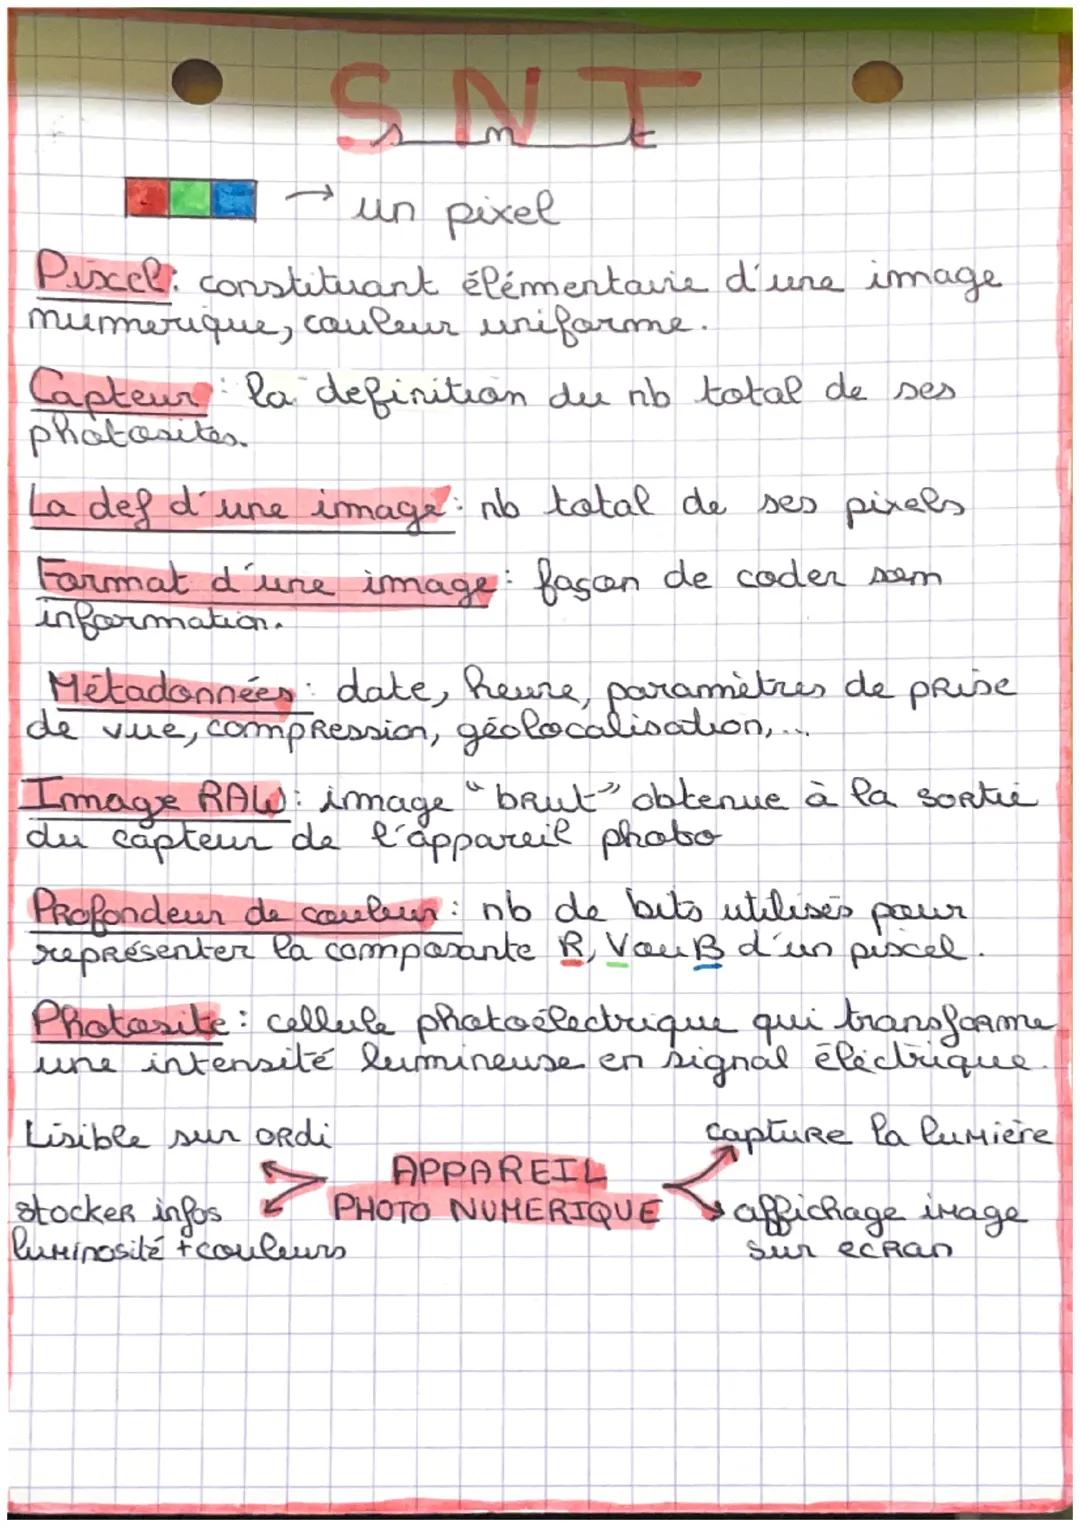 SNT
s n t
→ un pixel
Pixel: constituant élémentaire d'une image
numerique, couleur uniforme.
Capteur: la definition du nb total de ses
photosites.
La def d'une image: nb total de ses pixels
Format d'une image: façon de coder son
information.
Métadonnées: date, heure, paramètres de prise
de vue, compression, géolocalisation,...
Image RAW: image "brut" obtenue à la sortie
du capteur de l'appareil photo
Profondeur de couleur: nb de bits utilisés pour
représenter la composante R, V ou B d'un pixel.
Photosite: cellule photoélectrique qui transforme
une intensité lumineuse en signal éléctrique.
Lisible sur ordi
capture la lumière
APPAREIL
PHOTO NUMERIQUE
stocker infos
luminosité + couleurs
affichage image
sur ecran